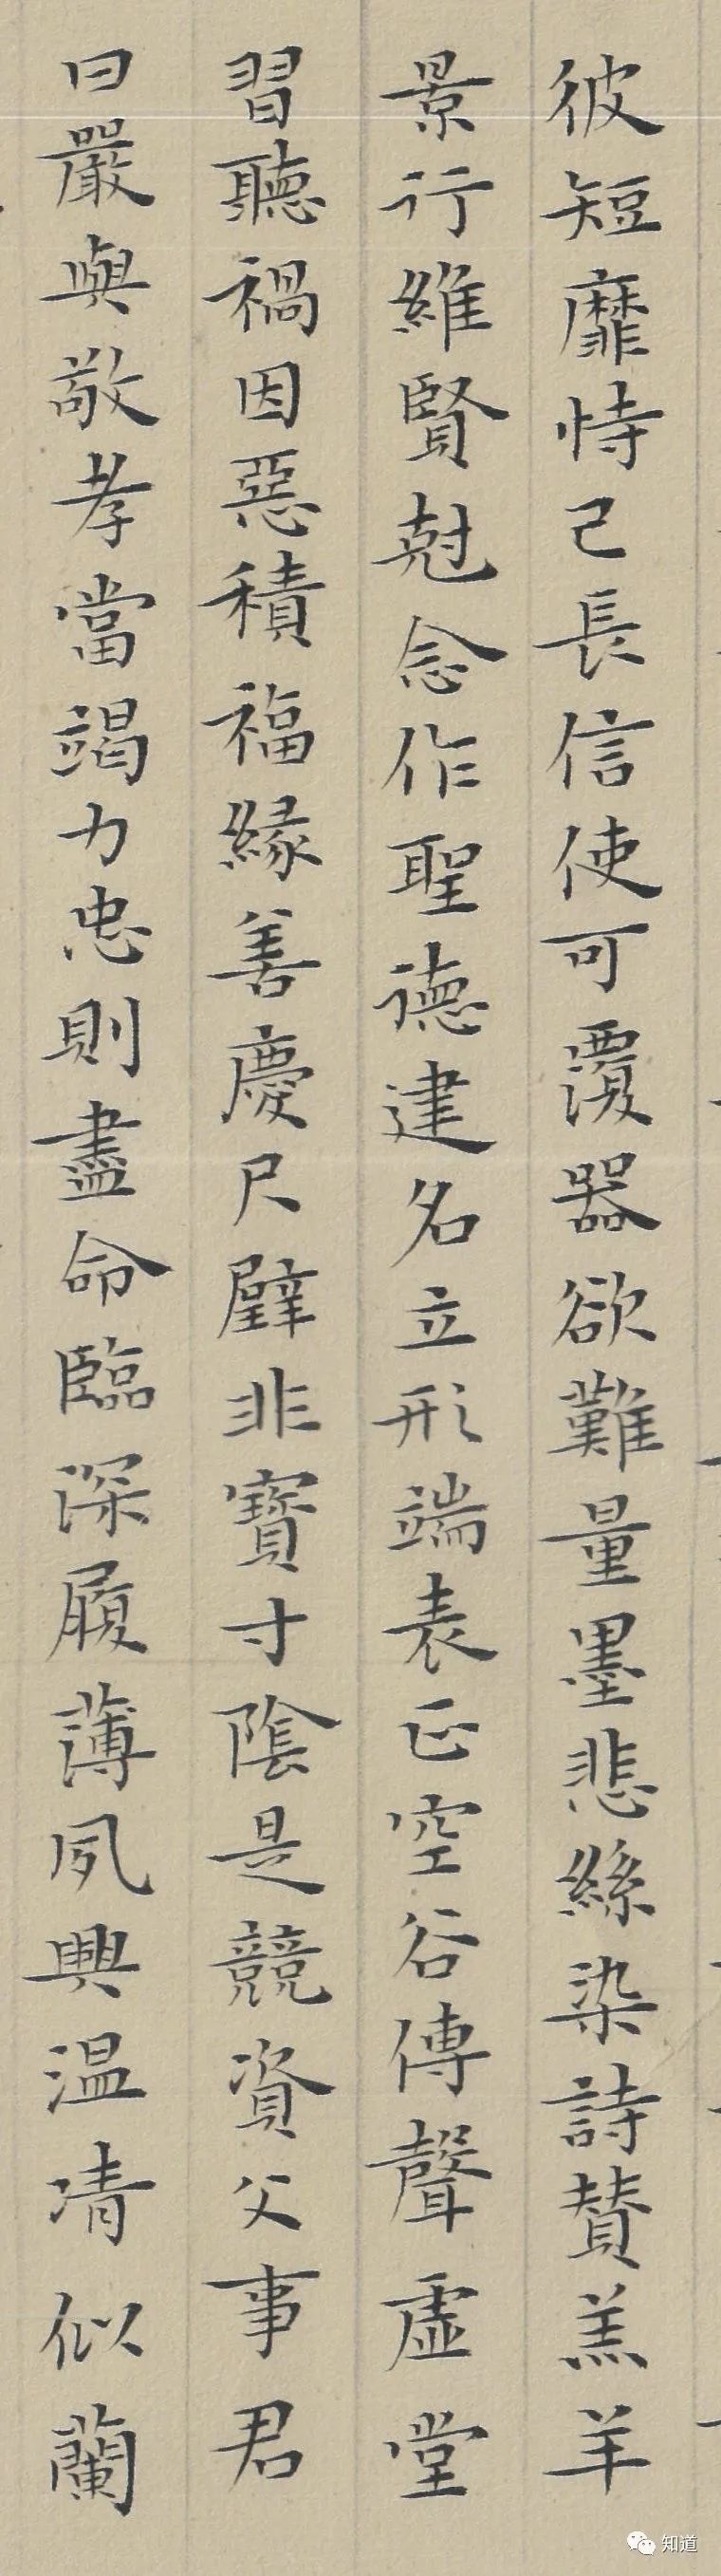 彼短靡恃己長信使可覆器欲難量墨悲絲染詩賛羔羊
景行維賢剋念作聖德建名立形端表正空谷傳聲虛堂
習聽禍因惡積福緣善慶尺璧非寶寸陰是競資父事君
曰嚴與敬孝當竭力忠則盡命臨深履薄夙興温凊似蘭
知道